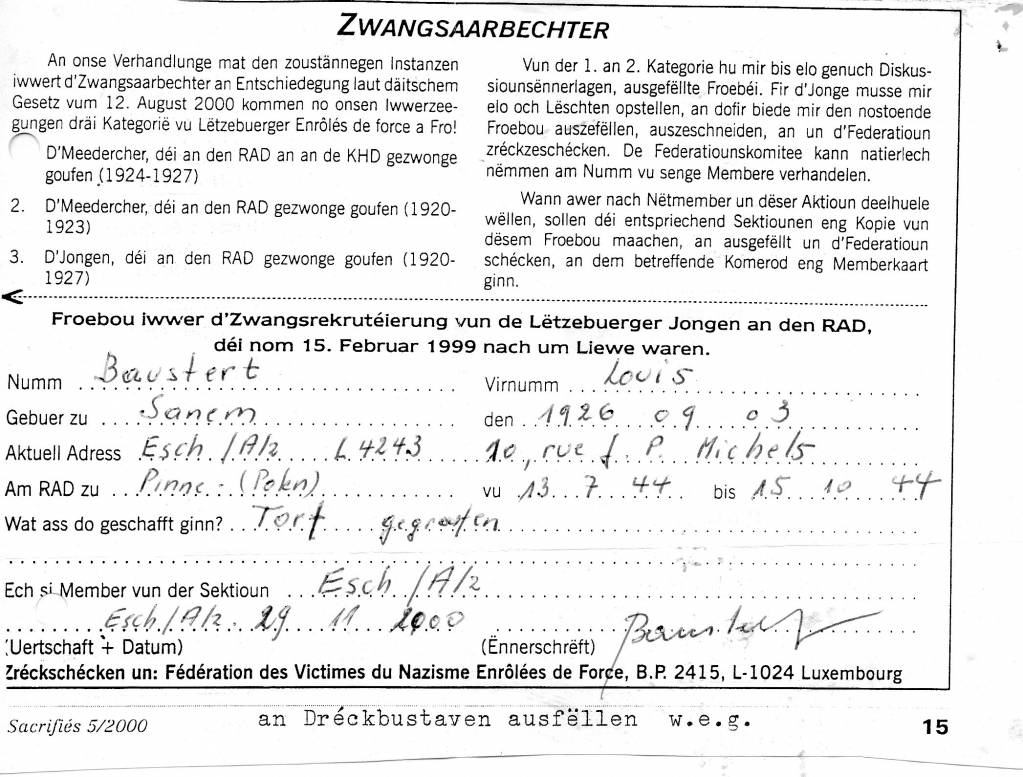 ZWANGSAARBECHTER
An onse Verhandlunge mat den zoustännegen Instanzen
iwwert d'Zwangsaarbechter an Entschiedegung laut däitschem
Gesetz vum 12. August 2000 kommen no onsen Iwwerzee-
gungen dräi Kategorië vu Lëtzebuerger Enrôlés de force a Fro!
D'Meedercher, déi an den RAD an an de KHD gezwonge
goufen (1924-1927)
2. D'Meedercher, déi an den RAD gezwonge goufen (1920-
1923)
3. D'Jongen, déi an den RAD gezwonge goufen (1920-
1927)
Vun der 1. an 2. Kategorie hu mir bis elo genuch Diskus-
siounsënnerlagen, ausgefëllte Froebéi. Fir d'Jonge musse mir
elo och Lëschten opstellen, an dofir biede mir den nostoende
Froebou auszefëllen, auszeschneiden, an un d'Federatioun
zréckzeschécken. De Federatiounskomitee kann natierlech
nëmmen am Numm vu senge Membere verhandelen.
Wann awer nach Nëtmember un dëser Aktioun deelhuele
wëllen, sollen déi entspriechend Sektiounen eng Kopie vun
dësem Froebou maachen, an ausgefëllt un d'Federatioun
schécken, an dem betreffende Komerod eng Memberkaart
ginn.
Froebou iwwer d'Zwangsrekrutéierung vun de Lëtzebuerger Jongen an den RAD,
déi nom 15. Februar 1999 nach um Liewe waren.
Numm Baustert Virnumm Louis
Gebuer zu Sanem den 1926 09 03
Aktuell Adress Esch/Alz L4243 10, rue J. P. Michels
Am RAD zu Pinne - (Polen) vu 13 7 44 bis 15 10 44
Wat ass do geschafft ginn? Torf gegraofen
Ech si Member vun der Sektioun Esch/Alz
Esch/Alz. 29 11 2000
(Uertschaft + Datum) (Ënnerschrëft)
Zréckschécken un: Fédération des Victimes du Nazisme Enrôlées de Force, B.P. 2415, L-1024 Luxembourg
Sacrifiés 5/2000 an Dréckbustaven ausfëllen w.e.g. 15